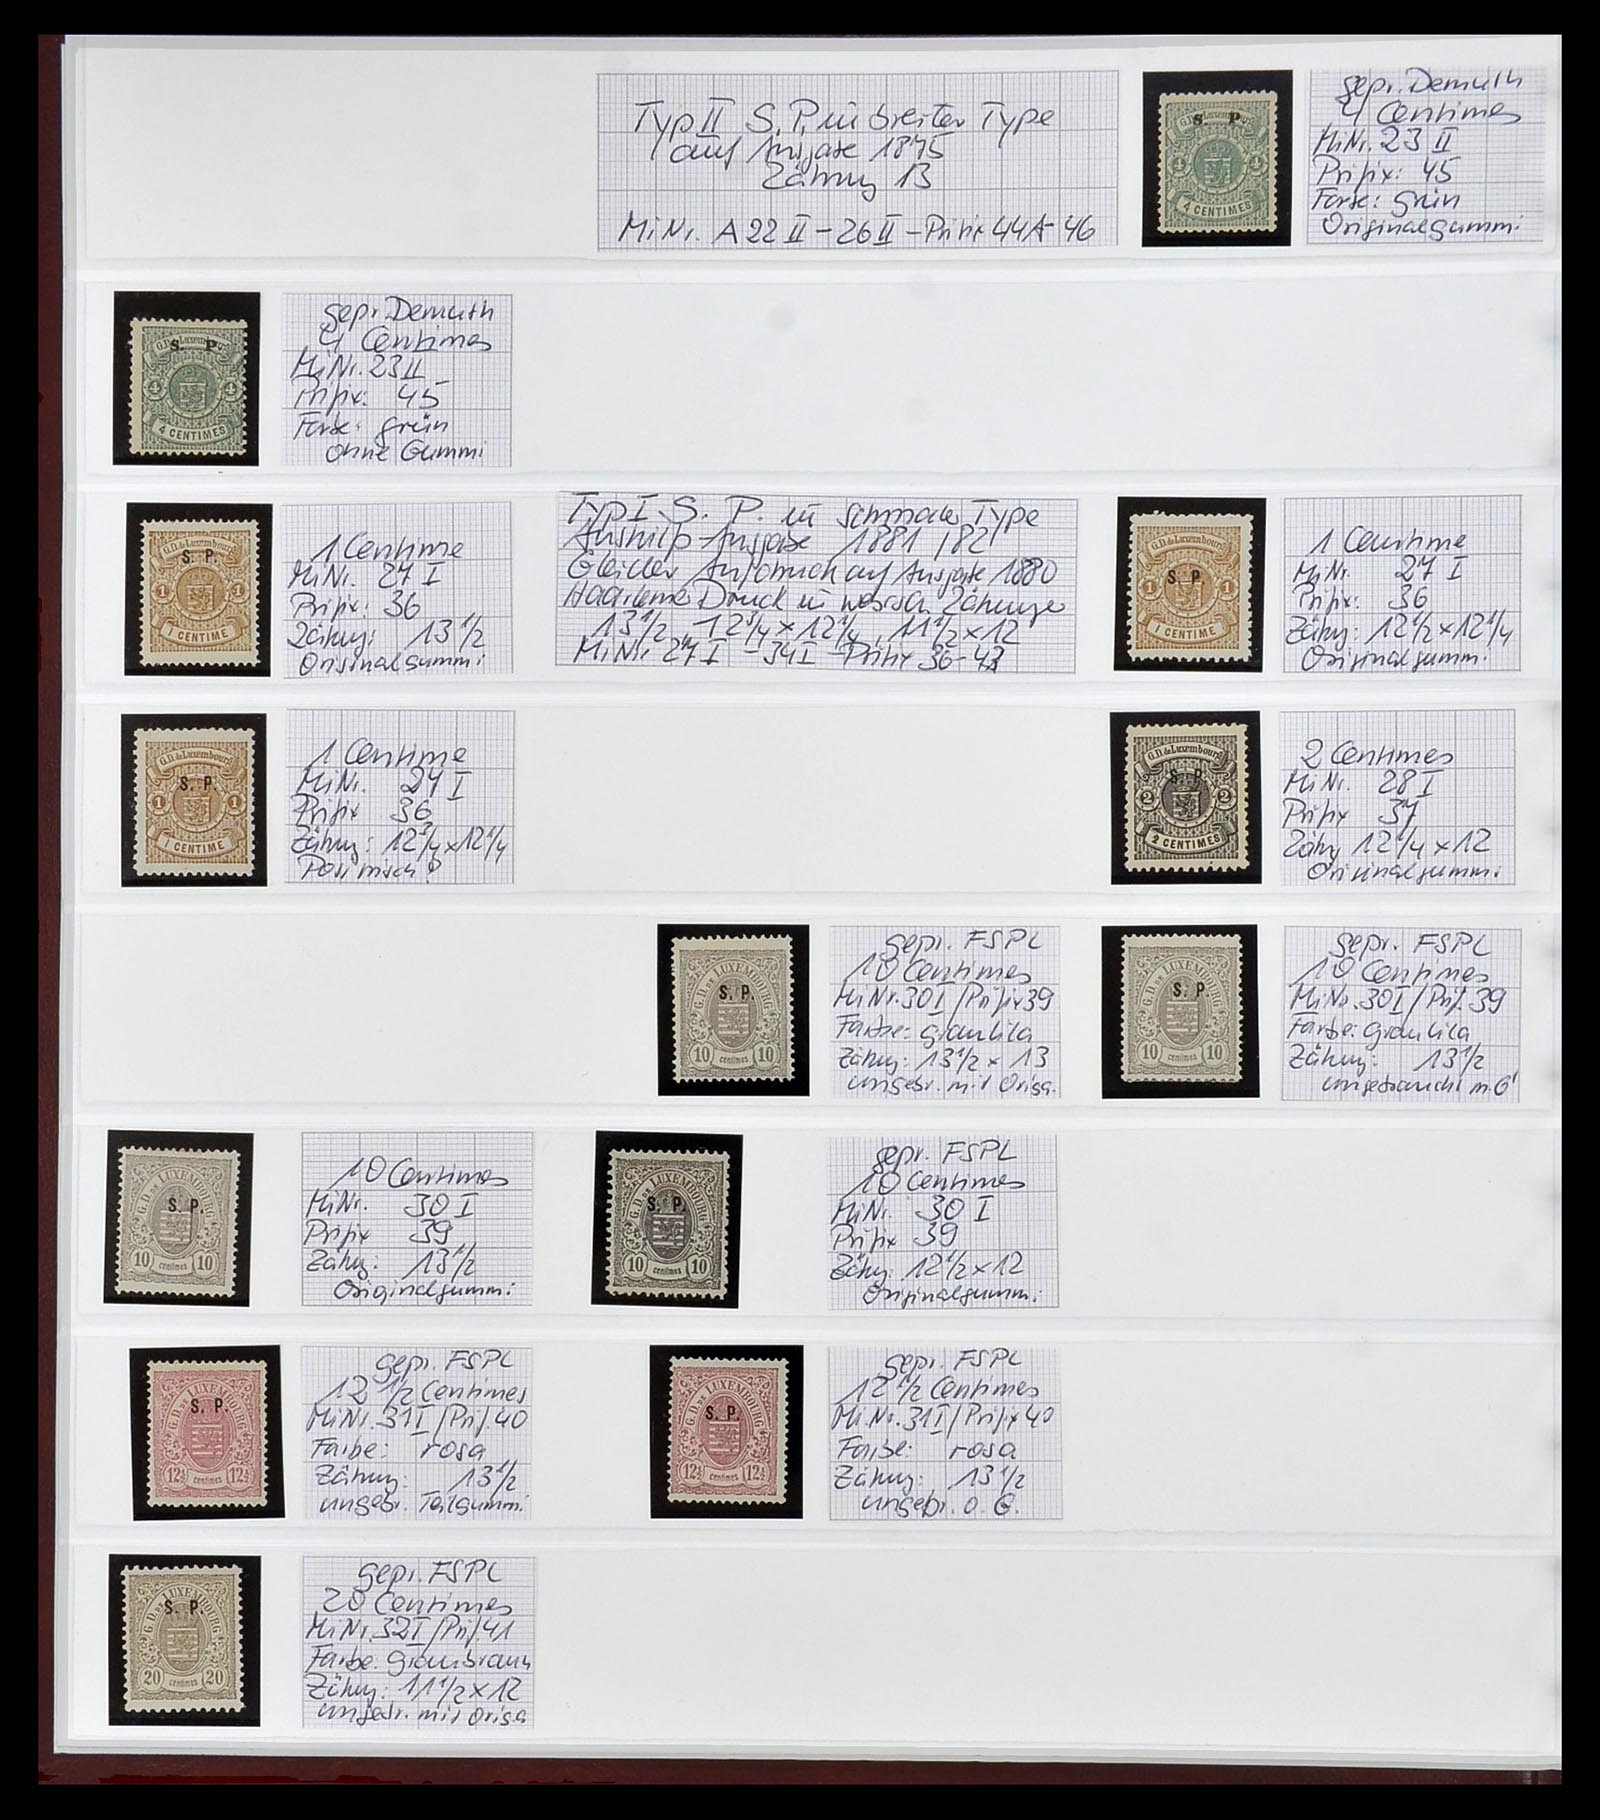 Typ II S.P. in breiter Type
auf Ausgabe 1875
Zähnug 13
MiNr. A22 II - 26 II - Prifix 44A-46
G.D. de Luxembourg
S. P.
4 4
4 CENTIMES
gepr. Demuth
4 Centimes
MiNr. 23 II
Prifix: 45
Farbe: grün
Originalgummi
G.D. de Luxembourg
S. P.
4 4
4 CENTIMES
gepr. Demuth
4 Centimes
MiNr. 23 II
Prifix: 45
Farbe: grün
ohne Gummi
G.D. de Luxembourg
S. P.
1 1
1 CENTIME
1 Centime
MiNr. 27 I
Prifix: 36
Zähnug: 13 1/2
Originalgummi
Typ I S. P. in schmaler Type
Aushilfs-Ausgabe 1881/82
Gleicher Aufdruck auf Ausgabe 1880
Haarlemer Druck in
13 1/2, 12 3/4 x 12 1/4, 11 1/2 x 12
MiNr. 27 I - 34 I - Prifix 36-43
G.D. de Luxembourg
S. P.
1 1
1 CENTIME
1 Centime
MiNr. 27 I
Prifix: 36
Zähnug: 12 1/2 x 12 1/4
Originalgummi
G.D. de Luxembourg
S. P.
1 1
1 CENTIME
1 Centime
MiNr. 27 I
Prifix 36
Zähnug: 12 3/4 x 12 1/4
Postfrisch?
G.D. de Luxembourg
S. P.
2 2
2 CENTIMES
2 Centimes
MiNr. 28 I
Prifix 37
Zähng 12 1/4 x 12
Originalgummi
G.D. DE LUXEMBOURG
S. P.
10 centimes 10
gepr. FSPL
10 Centimes
MiNr. 30 I/Prifix 39
Farbe: graulila
Zähnug: 13 1/2 x 13
ungebr. mit Origg.
G.D. DE LUXEMBOURG
S. P.
10 centimes 10
gepr. FSPL
10 Centimes
MiNr. 30 I/Prif. 39
Farbe: graulila
Zähnug: 13 1/2
ungebraucht m. G
G.D. DE LUXEMBOURG
S. P.
10 centimes 10
10 Centimes
MiNr. 30 I
Prifix 39
Zähng: 13 1/2
Originalgummi
G.D. DE LUXEMBOURG
S. P.
10 centimes 10
gepr. FSPL
10 Centimes
MiNr. 30 I
Prifix 39
Zähng: 12 1/2 x 12
Originalgummi
G.D. DE LUXEMBOURG
S. P.
12½ centimes 12½
gepr. FSPL
12 1/2 Centimes
MiNr. 31 I/Prif. 40
Farbe: rosa
Zähnug: 13 1/2
ungebr. Teilgummi
G.D. DE LUXEMBOURG
S. P.
12½ centimes 12½
gepr. FSPL
12 1/2 Centimes
Mi.Nr. 31 I/Prifix 40
Farbe: rosa
Zähnug: 13 1/2
ungebr. o. G.
G.D. DE LUXEMBOURG
S. P.
20 centimes 20
gepr. FSPL
20 Centimes
MiNr. 32 I/Prif. 41
Farbe: graubraun
Zähnug: 11 1/2 x 12
ungebr. mit Origg